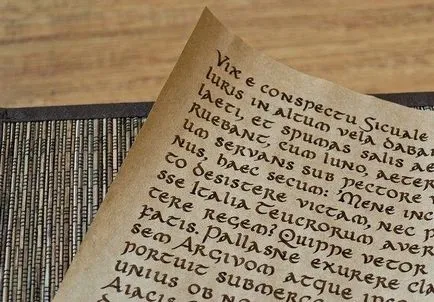 Vix e conspectu Sicuale
luris in altum vela daba
laeti, et spumas salis ae
ruebant, cum Iuno, aeter
um servans sub pectore v
nus, haec secum: Mene inc
to desistere victam, nec p
sse Italia Teucrorum aver
tere regem? Quippe vetor
fatis. Pallasne exurere cla
sem Argivom atque
portuit submerg
unius ob no
Aiacis